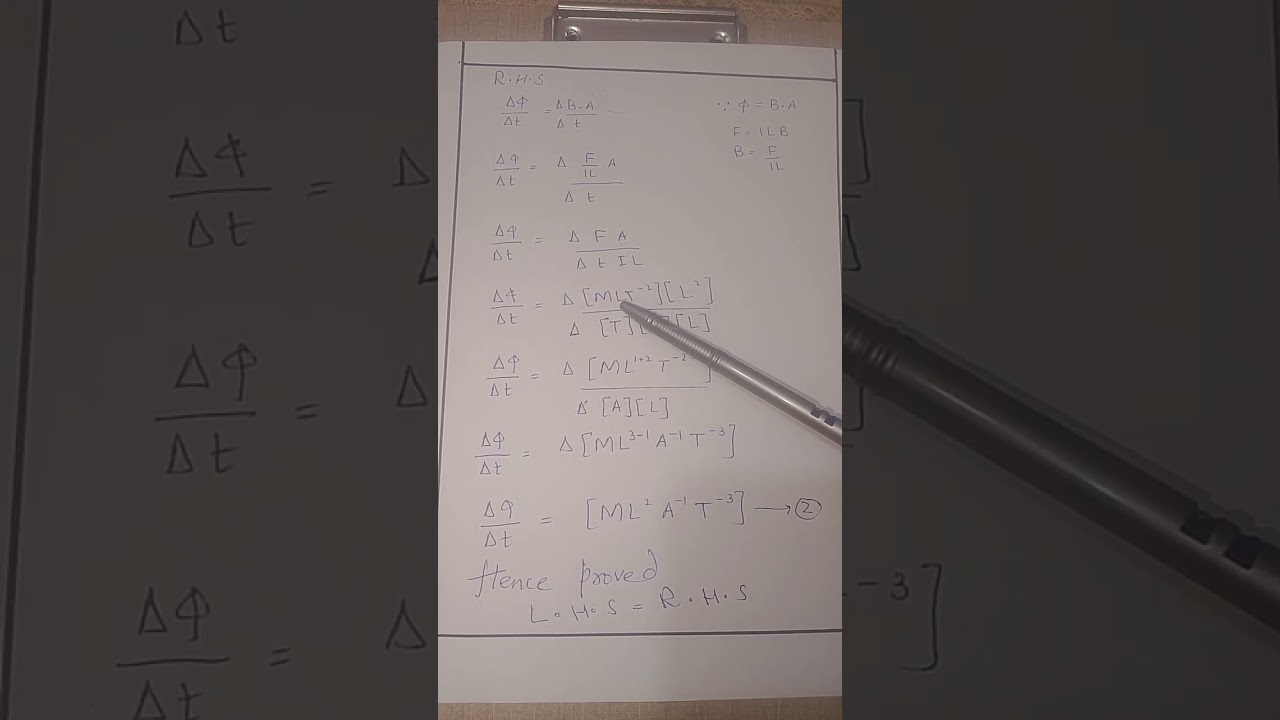 R.H.S
ΔΦ/Δt = ΔB.A/Δt ∵ Φ = B.A
F = ILB
B = F/IL
ΔΦ/Δt = Δ F/IL A/Δt
ΔΦ/Δt = Δ F A/Δt IL
ΔΦ/Δt = Δ [MLT⁻²][L²]/Δ [T][L]
ΔΦ/Δt = Δ [ML¹⁺²T⁻²]/Δ [A][L]
ΔΦ/Δt = Δ[ML³⁻¹A⁻¹T⁻³]
ΔΦ/Δt = [ML²A⁻¹T⁻³] → ②
Hence proved
L.H.S = R.H.S